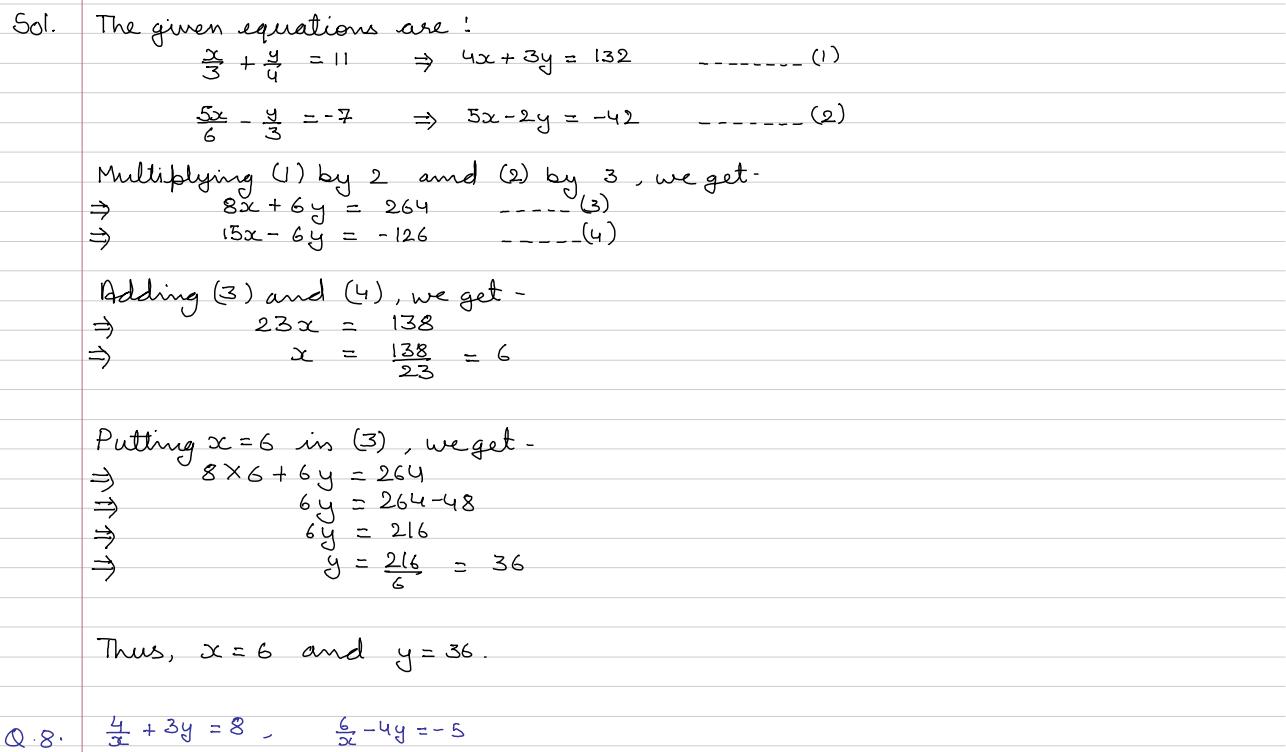 Sol. The given equations are :
x/3 + y/4 = 11 ⇒ 4x + 3y = 132 -------- (1)
5x/6 - y/3 = -7 ⇒ 5x - 2y = -42 ------- (2)
Multiplying (1) by 2 and (2) by 3, we get -
⇒ 8x + 6y = 264 ----- (3)
⇒ 15x - 6y = -126 ----- (4)
Adding (3) and (4), we get -
⇒ 23x = 138
⇒ x = 138/23 = 6
Putting x = 6 in (3), we get -
⇒ 8 × 6 + 6y = 264
⇒ 6y = 264 - 48
⇒ 6y = 216
⇒ y = 216/6 = 36
Thus, x = 6 and y = 36.
Q.8. 4/x + 3y = 8, 6/x - 4y = -5